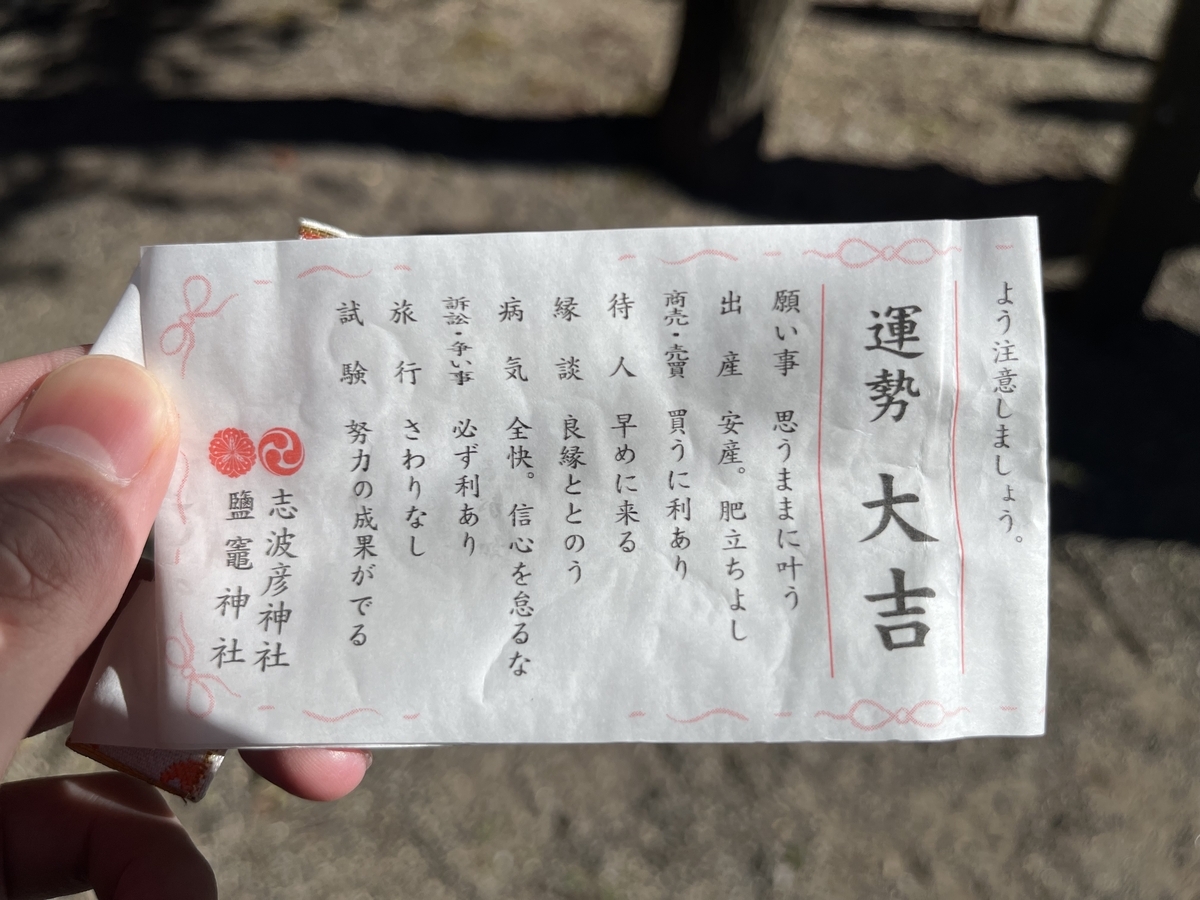 よう注意しましょう。
運勢 大吉
願い事 思うままに叶う
出産 安産。肥立ちよし
商売・売買 買うに利あり
待人 早めに来る
縁談 良縁ととのう
病気 全快。信心を怠るな
訴訟・争い事 必ず利あり
旅行 さわりなし
試験 努力の成果がでる
志波彦神社
鹽竈神社